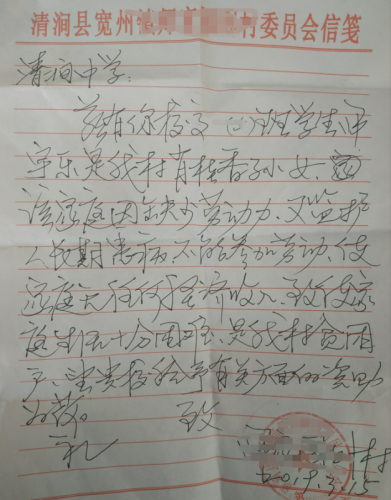 清涧县宽州镇 村委员会信笺
清涧中学:
兹有你校高一(2)班学生
宇乐是我村肖桂香子女,
该家庭因缺少劳动力,又监护
人长期患病不能参加劳动,使
家庭无任何经济收入,致使家
庭生活十分困难,是我村贫困
户,望贵校给予有关方面的资助
为荷。
致
礼
村
2019.3.15